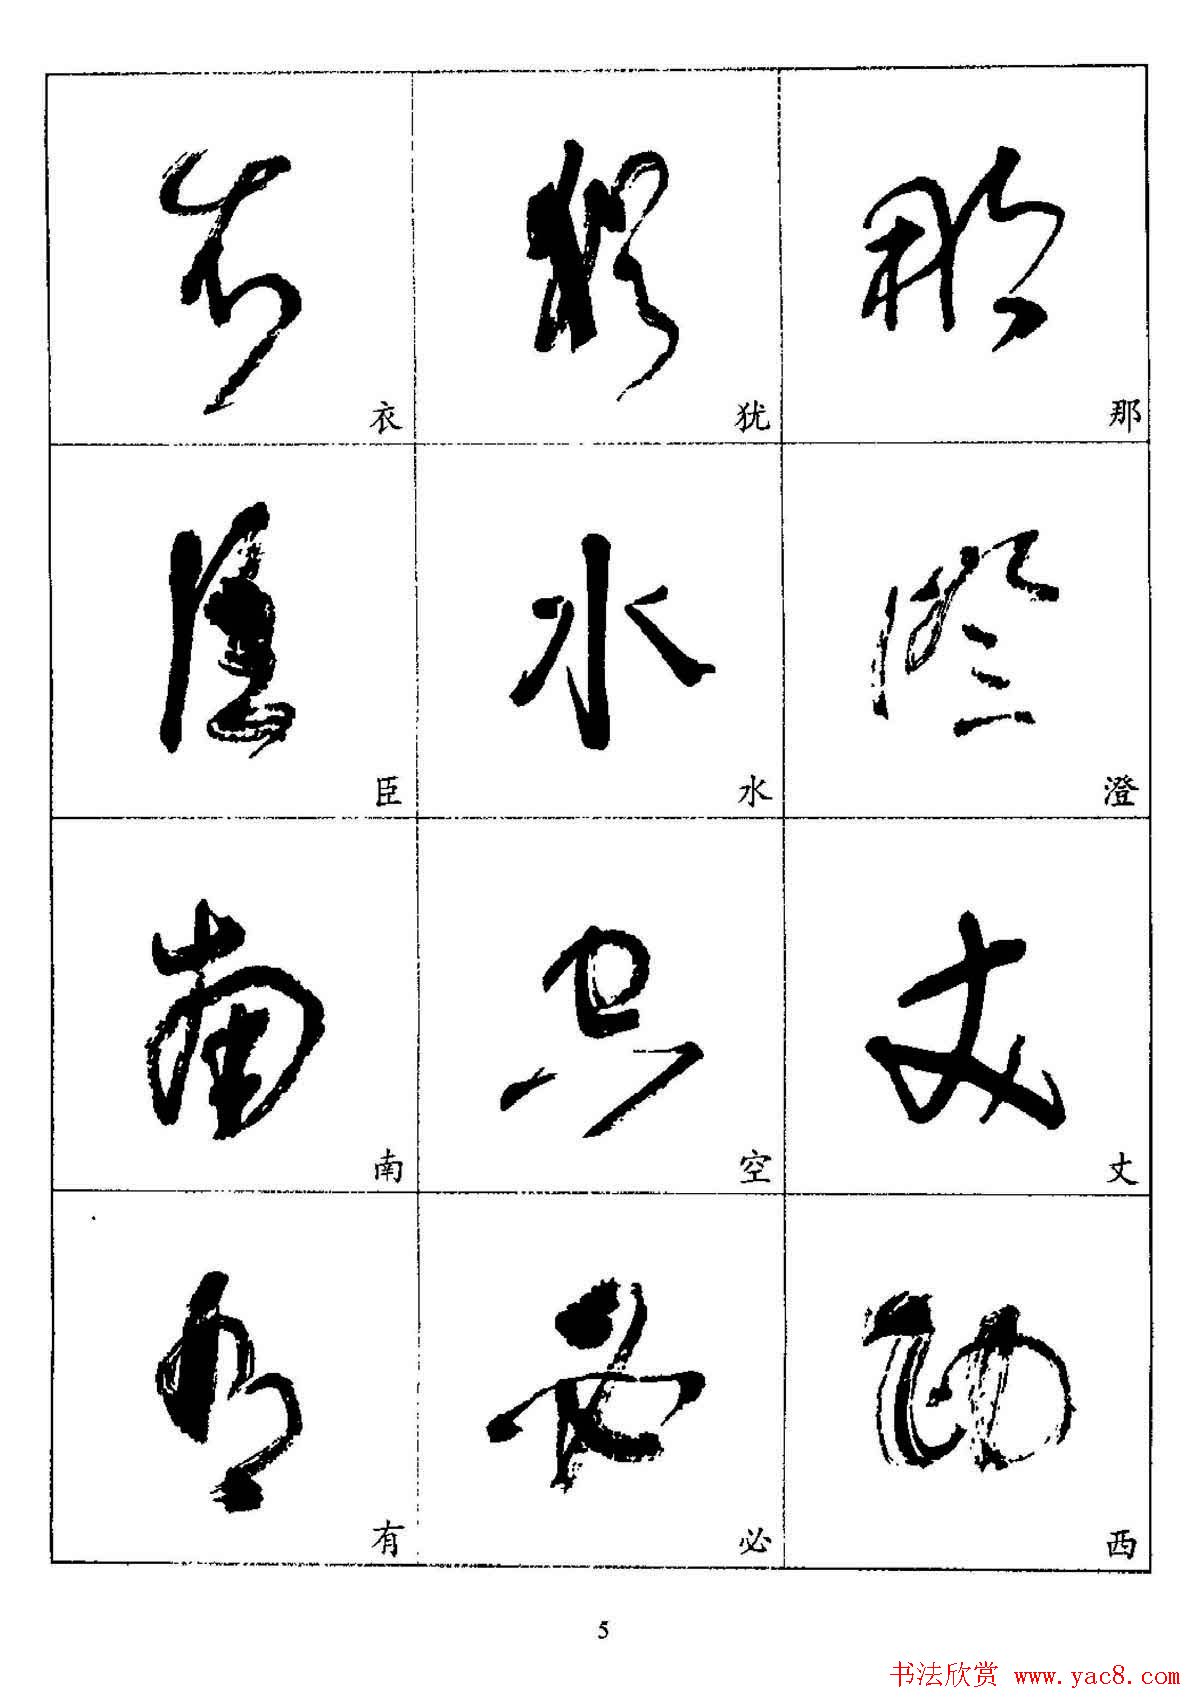 衣 犹 那
臣 水 澄
南 空 丈
有 必 西
5
书法欣赏 www.yac8.com